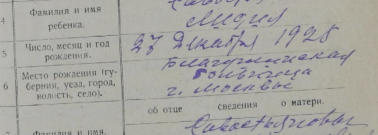 4
Фамилия и имя
ребенка.
Лидия
5
Число, месяц и год
рождения.
27 Декабря 1925
6
Место рождения (гу-
берния, уезд, город,
волость, село).
больница
г. Москвы
об отце
сведения
о матери.
7
Фамилия и имя.